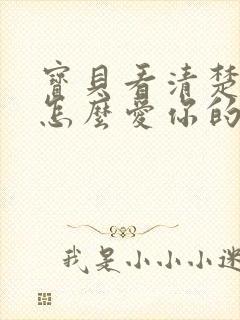 寶貝看清楚
怎麼愛你的
我是小小小迷